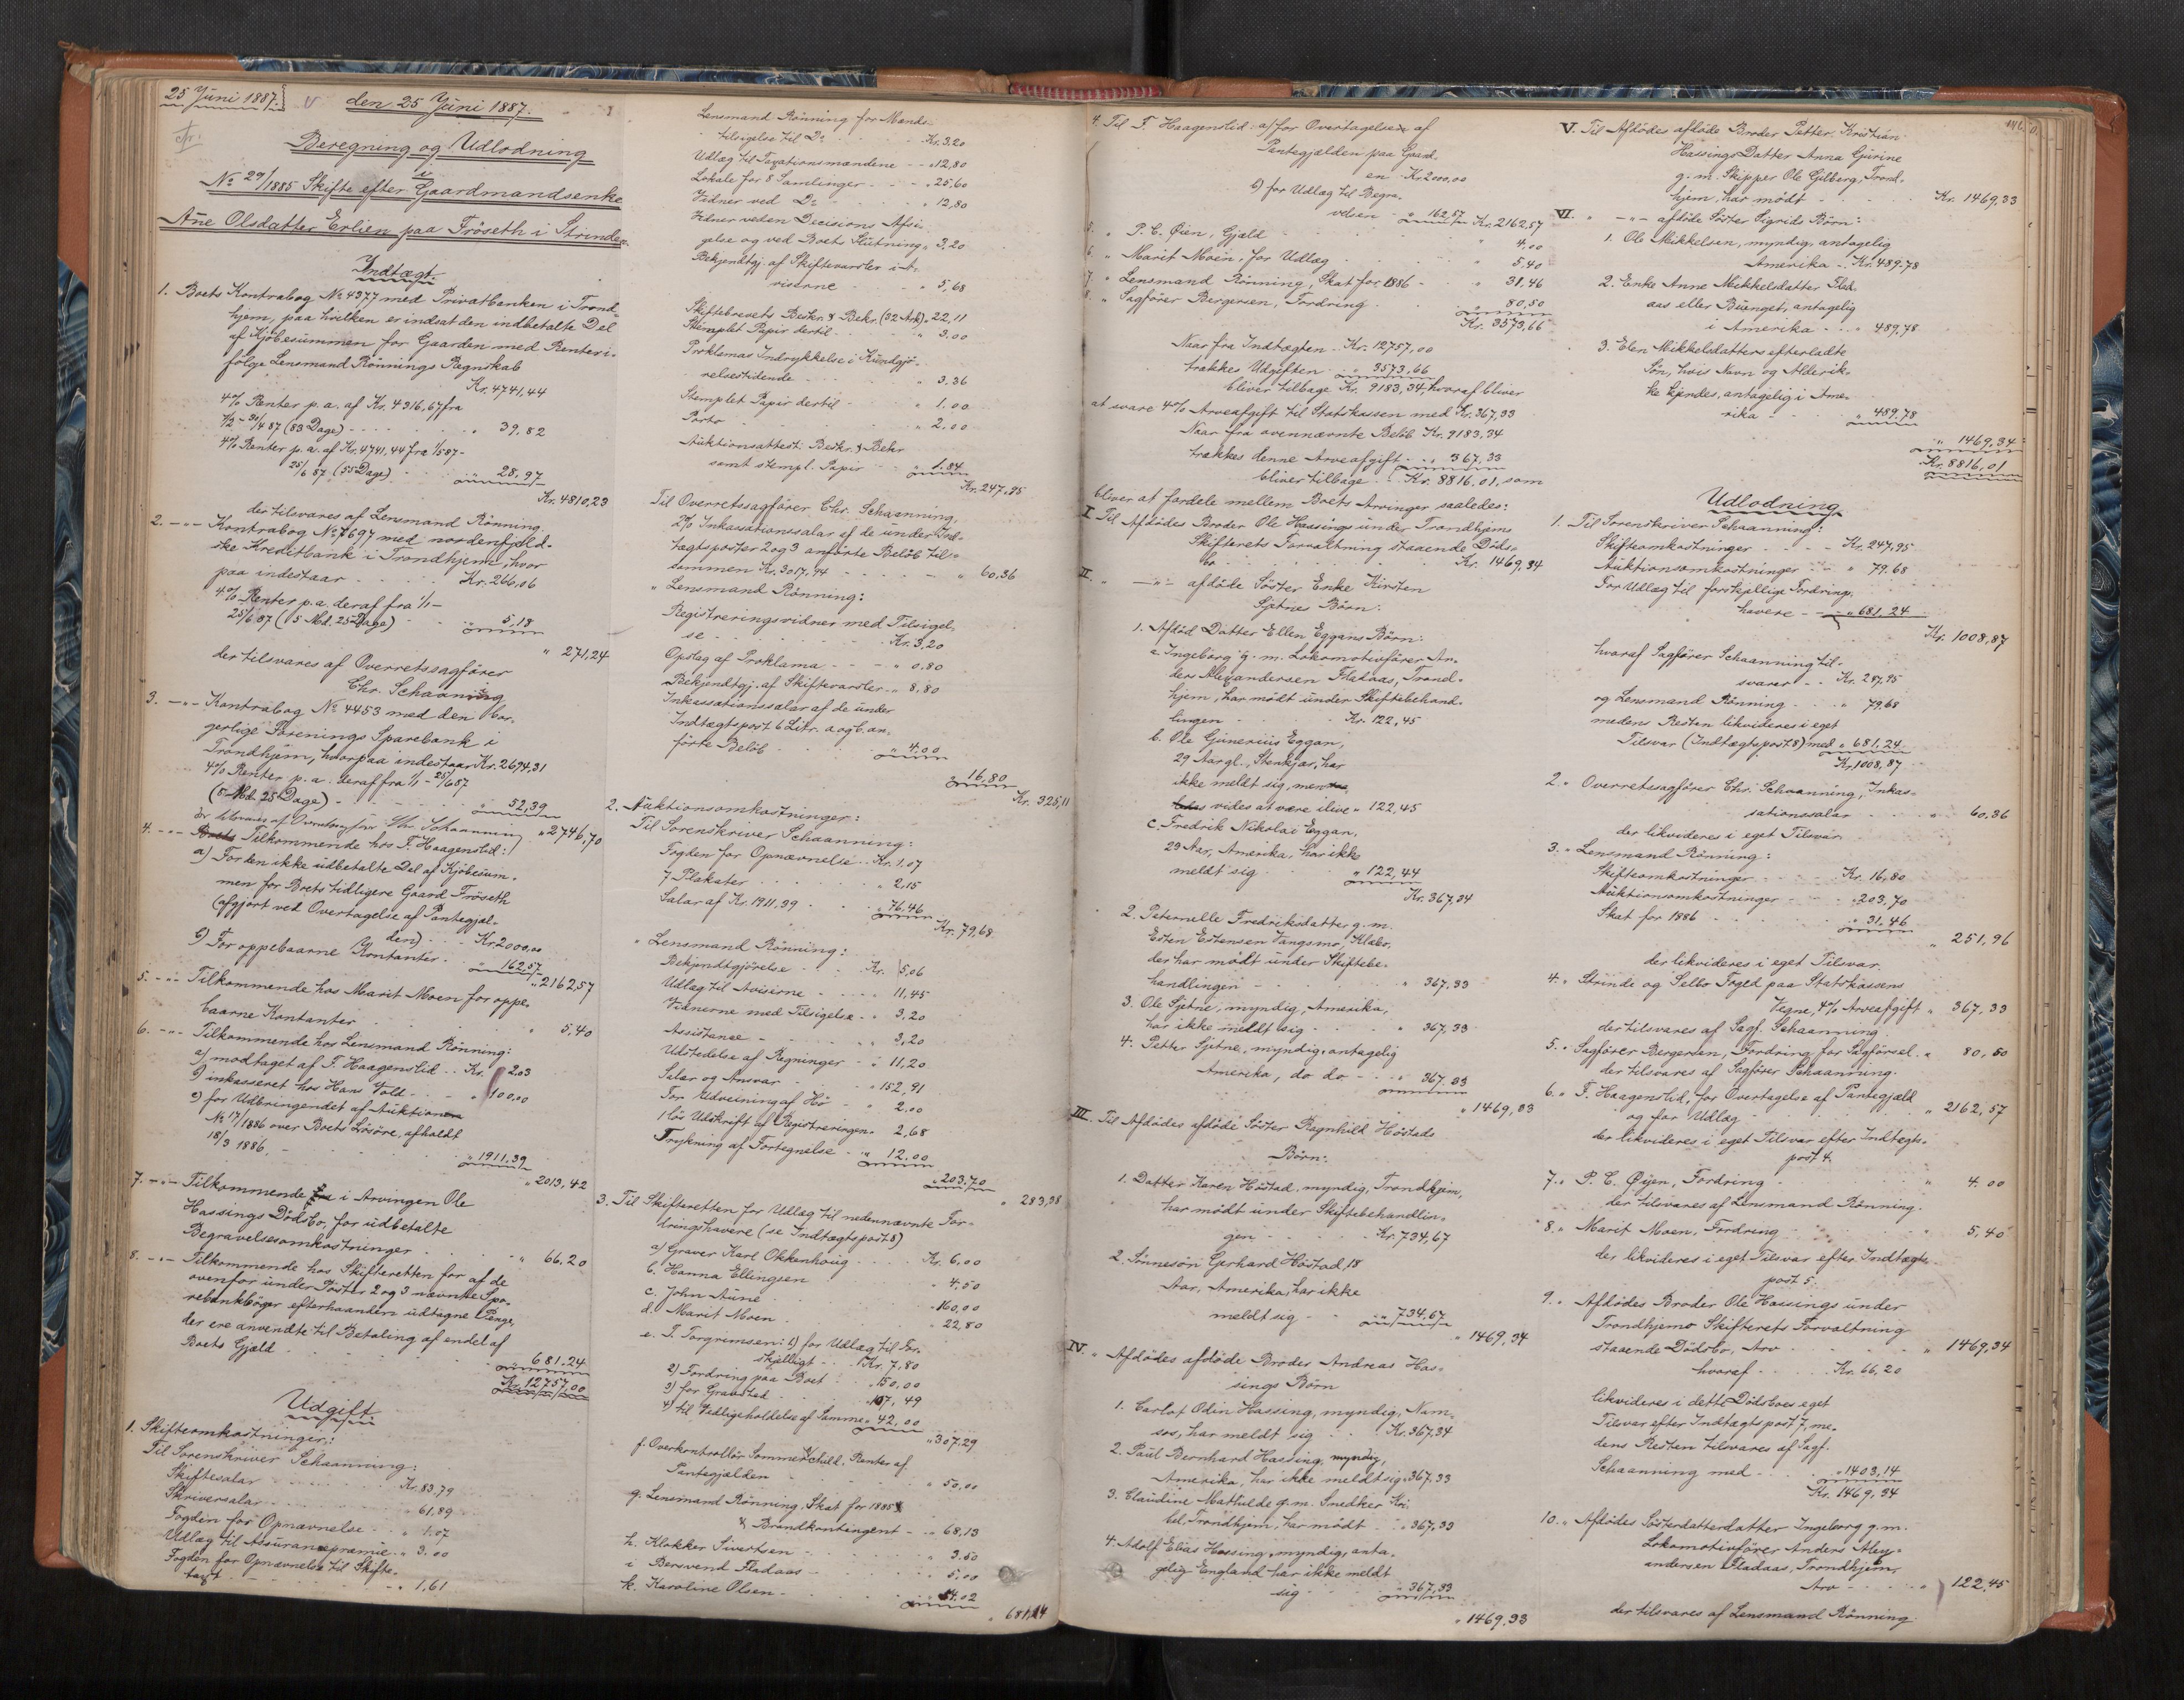 25 Juni 1887.
den 25 Juni 1887.
Fr:
Beregning og Udlodning
i
No 29/1885 Skifte efter Gaardmandsenke
Ane Olsdatter Erlien paa Fröseth i Strinden.
Indtægt.
1. Boets Kontrabog No 4377 med Privatbanken i Trond-
hjem, paa hvilken er indsat den indbetalte Del
af Kjöbesummen for Gaarden med Renter i-
fölge Lensmand Rönnings Regnskab
Kr. 4741,44
4% Renter p. a. af Kr. 4316,67 fra
1/2 - 30/4 87 (83 Dage) - - - " 39,82
4% Renter p. a. af Kr. 4741,44 fra 1/5 87 -
25/6 87 (55 Dage) - - " 28,97
Kr. 4810,23
der tilsvares af Lensmand Rönning.
2. -"- Kontrabog No 7697 med nordenfjeld-
ske Kreditbank i Trondhjem, hvor
paa indestaar - - - Kr. 266,06
4% Renter p. a. deraf fra 1/1 -
25/6 87 (5 Md. 25 Dage) - " 5,18
" 271,24
der tilsvares af Overretssagförer
Chr. Schaanning
3. -"- Kontrabog No 4453 med den bor-
gerlige Forenings Sparebank i
Trondhjem, hvorpaa indestaar Kr. 2694,31
4% Renter p. a. deraf fra 1/1 - 25/6 87
(5 Md. 25 Dage) - - - " 52,39
der tilsvares af Overretssagförer Chr. Schaanning " 2746,70
4. -"- Boets Tilkommende hos F. Haagenstid:
a) For den ikke udbetalte Del af Kjöbesum-
men for Boets tidligere Gaard Fröseth
(afgjort ved Overtagelse af Pantegjæl-
den) - - Kr. 2000,00
b) For oppebaarne Kontanter - " 162,57
" 2162,57
5. -"- Tilkommende hos Marit Moen for oppe-
baarne Kontanter - - - " 5,40
6. -"- Tilkommende hos Lensmand Rönning:
a) modtaget af F. Haagenstid - Kr. 2,03
b) inkasseret hos Hans Told - - " 100,00
c) for Udbringendet af Auktionen
No 17/1886 over Boets Lösöre, afholdt
18/3 1886. - " 1911,39
" 2013,42
7. -"- Tilkommende i Arvingen Ole
Hassings Dödsbo, for udbetalte
Begravelsesomkostninger - - - " 66,20
8. -"- Tilkommende hos Skifteretten for af de
ovenfor under Poster 2 og 3 nævnte Spa-
rebankböger efterhaanden udtagne Penge,
der ere anvendte til Betaling af endel af
Boets Gjæld - - - 681,24
Kr. 12757,00
Udgift
1. Skifteomkostninger:
Til Sorenskriver Schaanning:
Skiftesalar - - - Kr. 83,79
Skriversalar - - - " 61,89
Fogden for Opnævnelse - - " 1,07
Udlæg til Assurancepræmie - " 3,00
Fogden for Opnævnelse til Skifte-
taxt - - - " 1,61
Lensmand Rönning for Mands-
tilsigelse til Do - - Kr. 3,20
Udlæg til Taxationsmændene - - " 12,80
Lokale for 8 Samlinger - - - " 25,60
Vidner ved Do - - - " 12,80
Vidner ved en Decisions Afsi-
gelse og ved Boets Slutning " 3,20
Bekjendtgj. af Skiftevarsler i A-
viserne - - " 5,68
Skiftebrevets Beskr. & Bekr. (32 Ark) " 22,11
Stemplet Papir dertil - - - " 3,00
Proklamas Indrykkelse i Kundgjö-
relsestidende - - - " 3,36
Stemplet Papir dertil - - - " 1.00
Porto - - - " 2.00
Auktionsattest: Beskr. & Bekr
samt stempl. Papir - - " 1.84
Kr. 247,95
Til Overretssagförer Chr. Schaanning,
2% Inkassationssalar af de under Ind-
tægtsposter 2 og 3 anförte Belöb til-
sammen Kr. 3017,94 - - - " 60,36
" Lensmand Rönning:
Registreringsvidner med Tilsigel-
se - - - Kr. 3,20
Opslag af Proklama - - - " 0.80
Bekjendtgj. af Skiftevarsler - " 8,80
Inkassationssalar af de under
Indtægtspost 6 Litr. a og b. an-
förte Belöb - - - " 4.00
" 16,80
Kr. 325,11
2. Auktionsomkostninger:
Til Sorenskriver Schaanning:
Fogden for Opnævnelse - Kr. 1.07
7 Plakater - - - " 2,15
Salar af Kr. 1911,39 - - " 76,46
Kr. 79,68
" Lensmand Rönning:
Bekjendtgjörelse - - Kr. 5,06
Udlæg til Aviserne - - - " 11,45
Vidnerne med Tilsigelse - - " 3,20
Assistance - - - " 3,20
Udstedelse af Regninger - " 11,20
Salar og Ansvar - - - " 152,91
For Udveining af Hö - - " 2.00
1 lös Udskrift af Registreringen " 2,68
Trykning af Fortegnelse - " 12.00
" 203,70
" 283,38
3. Til Skifteretten for Udlæg til nedennævnte For-
dringshavere (se Indtægtspost 8)
a) Graver Karl Okkenhoug - - - Kr. 6,00
b. Hanna Ellingsen - - - " 4,50
c. John Aune - - - " 160,00
d. Marit Moen - - - " 22,80
e. T. Torgrimsen: 1) for Udlæg til For-
skjelligt - - Kr. 7,80
2) Fordring paa Boet - - " 150,00
3) for Gravsted - - " 107,49
4) til Vedligeholdelse af Samme " 42,00
" 307,29
f. Overkontrollör Sommerschild, Renter af
Pantegjælden - - - " 50,00
g. Lensmand Rönning, Skat for 1885
& Brandkontingent - - " 68,13
h. Klokker Sivertsen - - - " 3.50
i Bersvend Fladaas - - - " 5,00
k. Karoline Olsen - - - " 54.02
" 681,24
4. Til F. Haagenstid: a) for Overtagelse af
Pantegjælden paa Gaard-
en - Kr. 2000,00
b) for Udlæg til Begra-
velsen - " 162,57 Kr. 2162,57
5. " P. C. Øien, Gjæld - - - " 4,00
6. " Marit Moen, for Udlæg - - - " 5.40
7. " Lensmand Rönning, Skat for 1886 - - " 31,46
8. " Sagförer Bergersen, Fordring - - - " 80,50
Kr. 3573,66
Naar fra Indtægten - Kr. 12757,00
trækkes Udgiften - " 3573,66
bliver tilbage Kr. 9183,34, hvoraf bliver
at svare 4% Arveafgift til Statskassen med Kr. 367,33
Naar fra ovennævnte Belöb Kr. 9183,34
trækkes denne Arveafgift - - " 367,33
bliver tilbage - - Kr. 8816,01, som
bliver at fordele mellem Boets Arvinger saaledes:
I Til Afdödes Broder Ole Hassings under Trondhjems
Skifterets Forvaltning staaende Döds-
bo - - - Kr. 1469,34
II. " -"- afdöde Söster Enke Kirsten
Sjetnes Börn:
1. Afdöd Datter Ellen Eggans Börn:
a. Ingeborg g. m. Lokomotivförer An-
ders Alexandersen Fladaas, Trond-
hjem, har mödt under Skiftebehand-
lingen - - - Kr. 122,45
b. Ole Gunerius Eggan,
29 Aar gl., Stenkjær, har
ikke meldt sig, men
vides at være ilive " 122,45
c. Fredrik Nikolai Eggan,
23 Aar, Amerika, har ikke
meldt sig - - - " 122,44
Kr. 367,34
2. Peternelle Fredriksdatter g. m.
Esten Estensen Vangsmo, Klæbo,
der har mödt under Skiftebe-
handlingen - - - " 367,33
3. Ole Sjetne, myndig, Amerika,
har ikke meldt sig - - - " 367,33
4. Petter Sjetne, myndig, antagelig
Amerika, do do - - " 367.33
" 1469,33
III. Til Afdödes afdöde Söster Ragnhild Höstads
Börn:
1. Datter Karen Höstad, myndig, Trondhjem,
har mödt under Skiftebehandlin-
gen - - - Kr. 734,67
2. Sönnesön Gerhard Höstad, 18
Aar, Amerika, har ikke
meldt sig - - " 734,67
" 1469,34
IV. " Afdödes afdöde Broder Andreas Has-
sings Börn
1. Carlot Odin Hassing, myndig, Nam-
sos, har meldt sig - - Kr. 367,34
2. Paul Bernhard Hassing, myndig,
Amerika, har ikke meldt sig " 367,33
3. Claudine Mathilde g. m. Snedker Kri-
, Trondhjem, har mödt - - " 367,33
4. Adolf Elias Hassing, myndig, anta-
gelig England har ikke meldt
sig - - - " 367,33
" 1469,33
146.
V. Til Afdödes afdöde Broder Petter Kristian
Hassings Datter Anna Gurine
g. m. Skipper Ole Gilberg, Trond-
hjem, har mödt - - - Kr. 1469,33
VI. " -"- afdöde Söster Sigrids Börn:
1. Ole Mikkelsen, myndig, antagelig
Amerika - Kr. 489.78
2. Enke Anne Mikkelsdatter Flad-
aas eller Bunget, antagelig
i Amerika - - - " 489,78
3. Elen Mikkelsdatters efterladte
Sön, hvis Navn og Alder ik-
ke kjendes, antagelig i Ame-
rika - - " 489.78
" 1469,34
Kr. 8816,01
Udlodning
1. Til Sorenskriver Schaanning:
Skifteomkostninger - - - Kr. 247,95
Auktionsomkostninger - - " 79.68
For Udlæg til forskjellige Fordrings-
havere - - - " 681.24
Kr. 1008,87
hvoraf Sagförer Schaanning til-
svarer - - Kr. 247,95
og Lensmand Rönning - - - " 79,68
medens Resten likvideres i eget
Tilsvar (Indtægtspost 8) med " 681,24
Kr. 1008,87
2. " Overretssagförer Chr. Schaanning, Inkas-
sationssalar - - - " 60.36
der likvideres i eget Tilsvar
3. " Lensmand Rönning:
Skifteomkostninger - - - Kr. 16,80
Auktionsomkostninger - - - " 203,70
Skat for 1886 - - - " 31,46
" 251,96
der likvideres i eget Tilsvar.
4. " Strinde og Selbo Foged paa Statskassens
Vegne, 4% Arveafgift " 367,33
der tilsvares af Sagf. Schaanning.
5. " Sagförer Bergersen, Fordring for Sagförsel. " 80,50
der tilsvares af Sagförer Schaanning.
6. " F. Haagenstid, for Overtagelse af Pantegjæld
og for Udlæg - - - " 2162,57
der likvideres i eget Tilsvar efter Indtægts-
post 4.
7. " P. C. Øyen, Fordring - - - " 4.00
der tilsvares af Lensmand Rönning.
8. " Marit Moen, Fordring - - - " 5,40
der likvideres i eget Tilsvar efter Indtægts-
post 5.
9. " Afdödes Broder Ole Hassings under
Trondhjems Skifterets Forvaltning
staaende Dödsbo, Arv - - - " 1469,34
hvoraf - - - Kr. 66,20
likvideres i dette Dödsboes eget
Tilsvar efter Indtægtspost 7, me-
dens Resten tilsvares af Sagf.
Schaanning med - - - " 1403,14
Kr. 1469,34
10. " Afdödes Sösterdatterdatter Ingeborg g. m.
Lokomotivförer Anders Alex-
andersen Fladaas, Trondhjem,
Arv - - - " 122,45
der tilsvares af Lensmand Rönning.